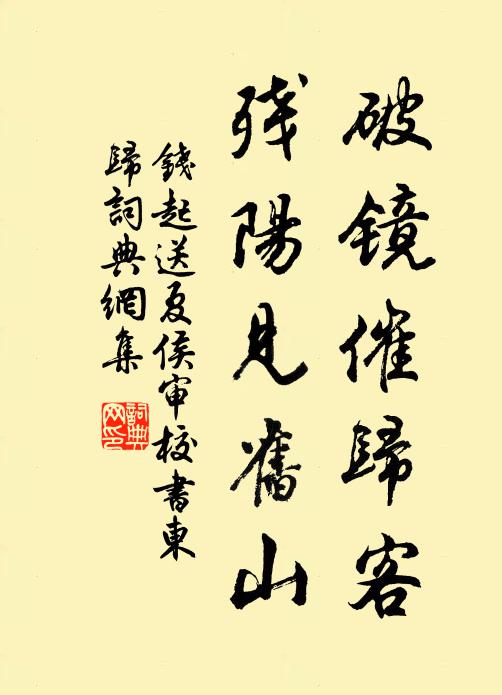 破镜催歸客
殘陽見舊山
錢起送夏侯审校書東
歸詞典網集
詞典
网印